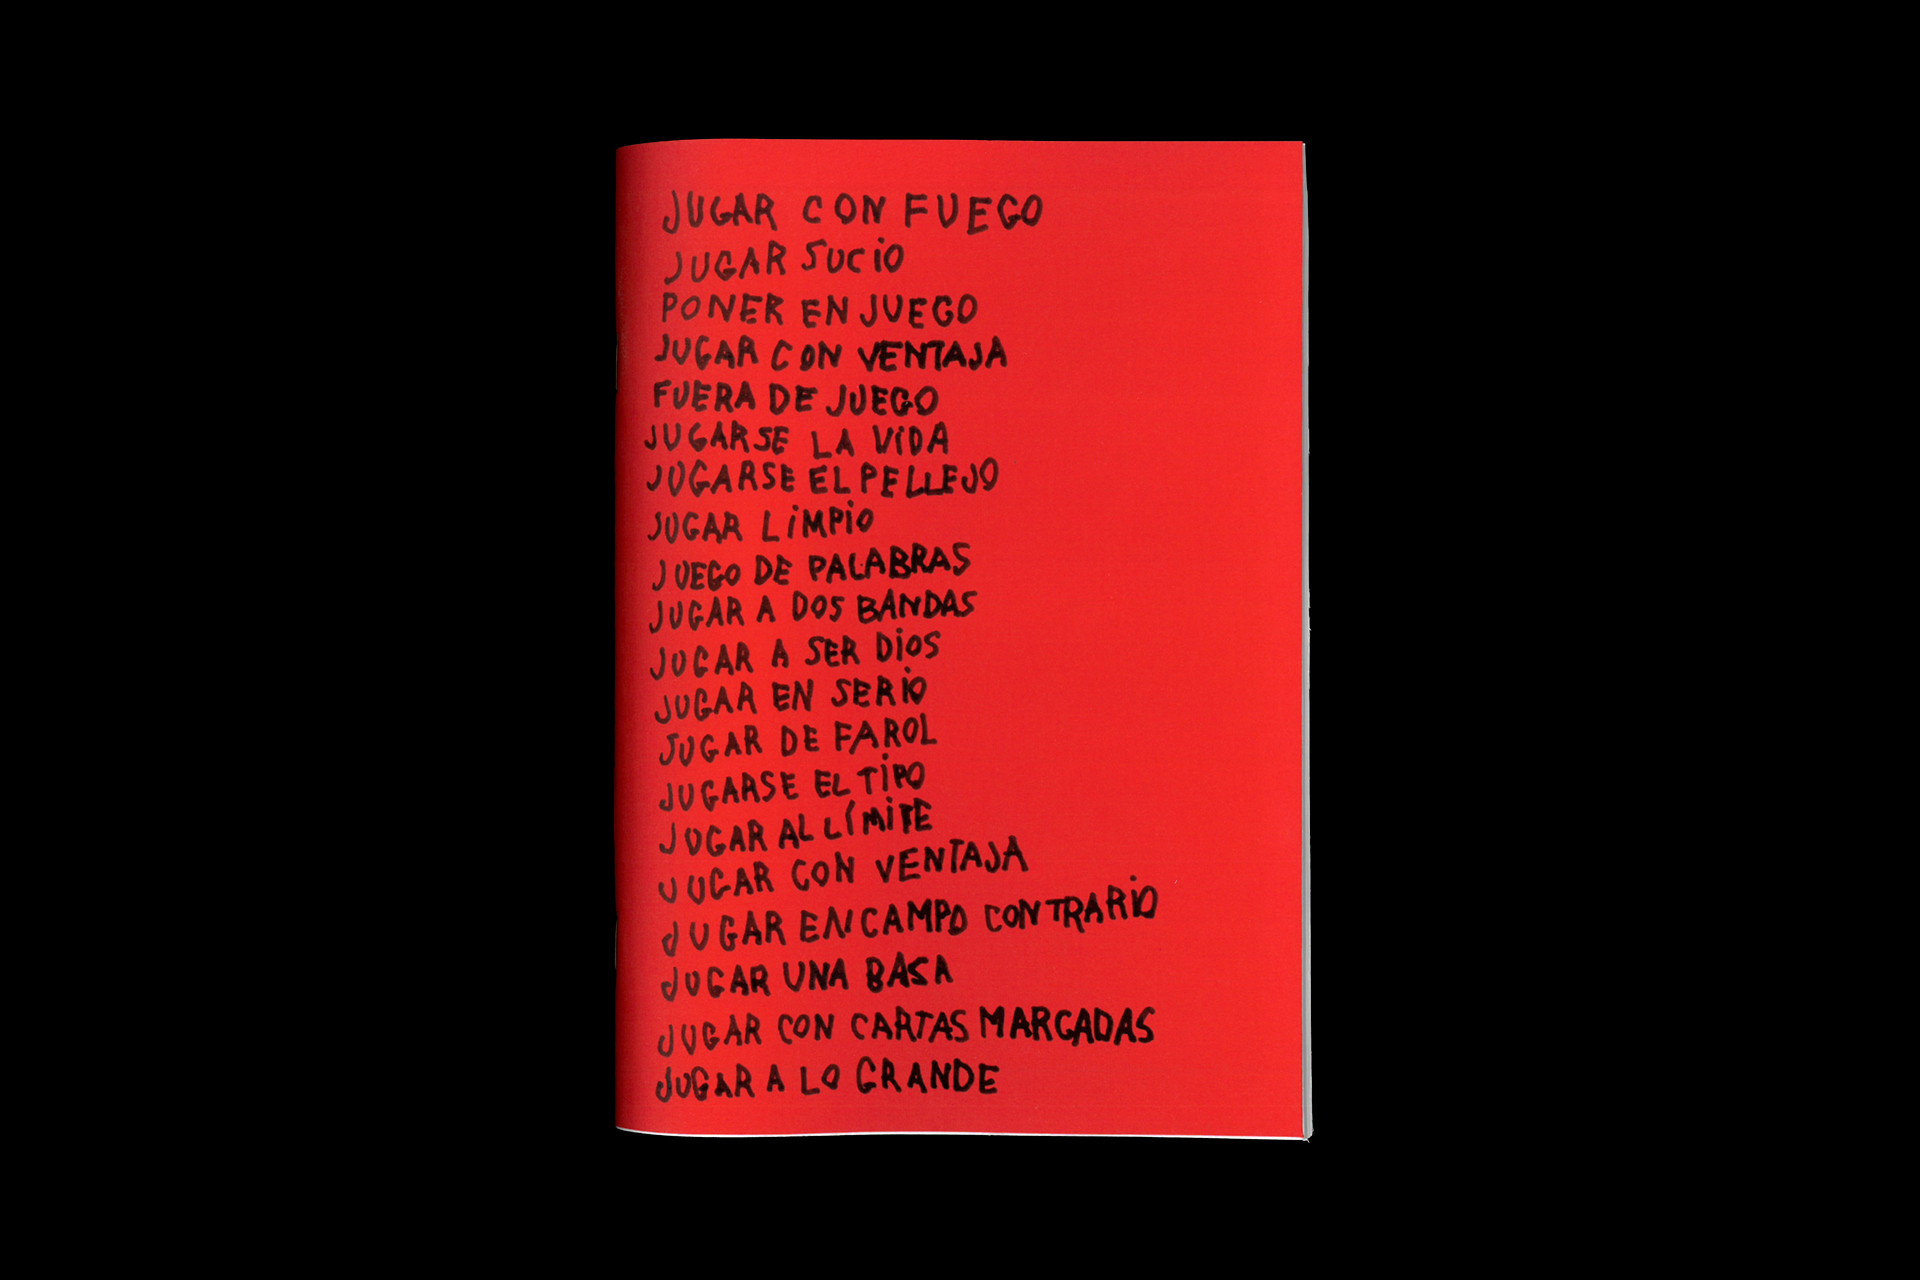 JUGAR CON FUEGO
JUGAR SUCiO
PONER EN JUEGO
JUGAR CON VENTAJA
FUERA DE JUEGO
JUGARSE LA ViDA
JUGARSE EL PELLEJO
JUGAR LiMPiO
JUEGO DE PALABRAS
JUGAR A DOS BANDAS
JUGAR A SER DiOS
JUGAR EN SERiO
JUGAR DE FAROL
JUGARSE EL TiPO
JUGAR AL LÍMiTE
JUGAR CON VENTAJA
JUGAR EN CAMPO CONTRARiO
JUGAR UNA BASA
JUGAR CON CARTAS MARCADAS
JUGAR A LO GRANDE